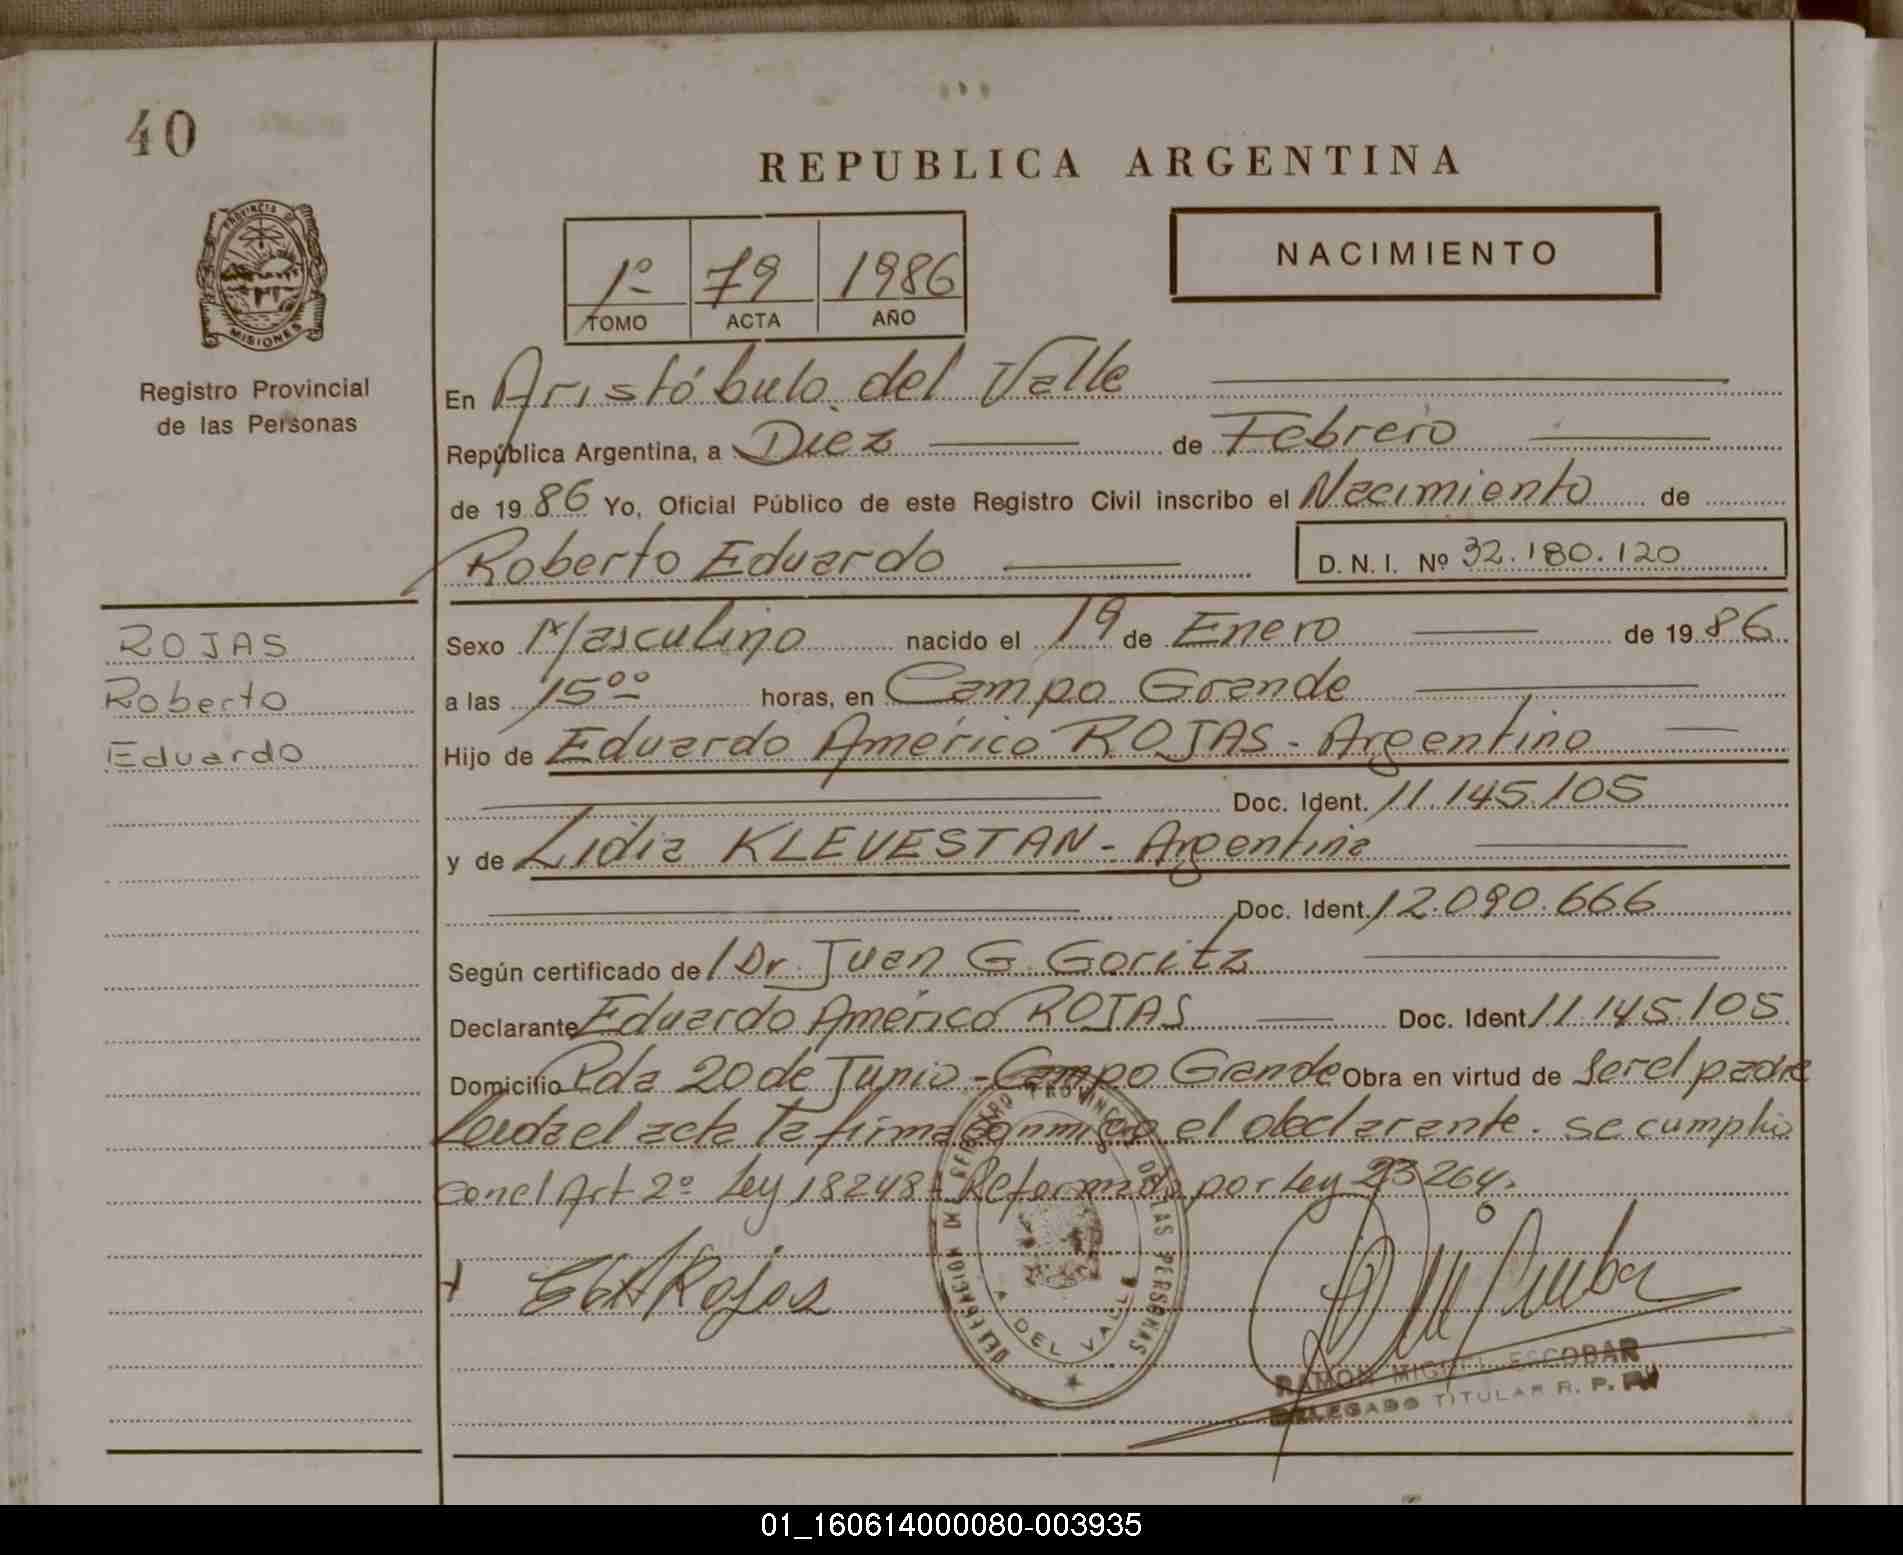 40
REPUBLICA ARGENTINA
PROVINCIA DE
MISIONES
Registro Provincial
de las Personas
1º 79 1986
TOMO ACTA AÑO
NACIMIENTO
En Aristóbulo del Valle
República Argentina, a Diez de Febrero
de 1986 Yo, Oficial Público de este Registro Civil inscribo el Nacimiento de
Roberto Eduardo D. N. I. Nº 32.180.120
ROJAS
Roberto
Eduardo
Sexo Masculino nacido el 19 de Enero de 1986
a las 15ºº horas, en Campo Grande
Hijo de Eduardo Américo ROJAS - Argentino
Doc. Ident. 11.145.105
y de Lidia KLEVESTAN - Argentina
Doc. Ident. 12.090.666
Según certificado de Dr. Juan G. Goritz
Declarante Eduardo Américo ROJAS Doc. Ident. 11.145.105
Domicilio Pda 20 de Junio - Campo Grande Obra en virtud de ser el padre
Leida el acta la firma conmigo el declarante. se cumplio
con el Art 2º Ley 18248 - Reformada por Ley 23264.
DELEGACION DEL REGISTRO PROVINCIAL DE LAS PERSONAS
A. DEL VALLE
E A Rojas
RAMON MIGUEL ESCOBAR
DELEGADO TITULAR R. P. P.
01_160614000080-003935